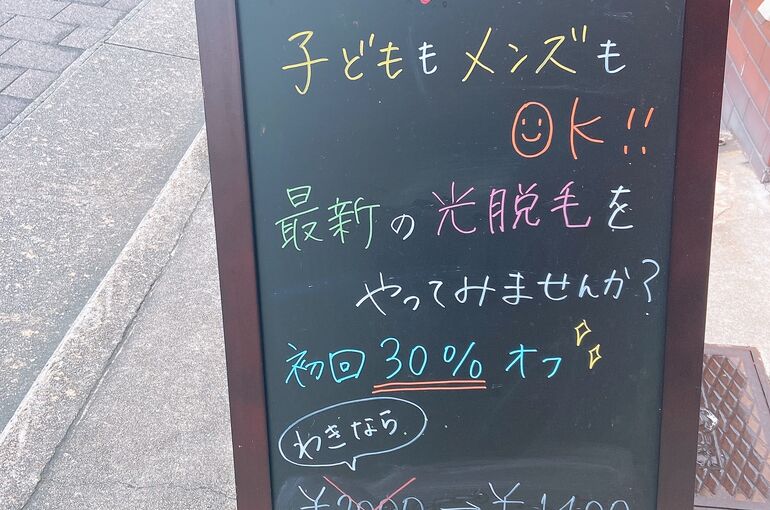 子どもも メンズも
OK!!
最新の光脱毛を
やってみませんか?
初回30%オフ
わきなら